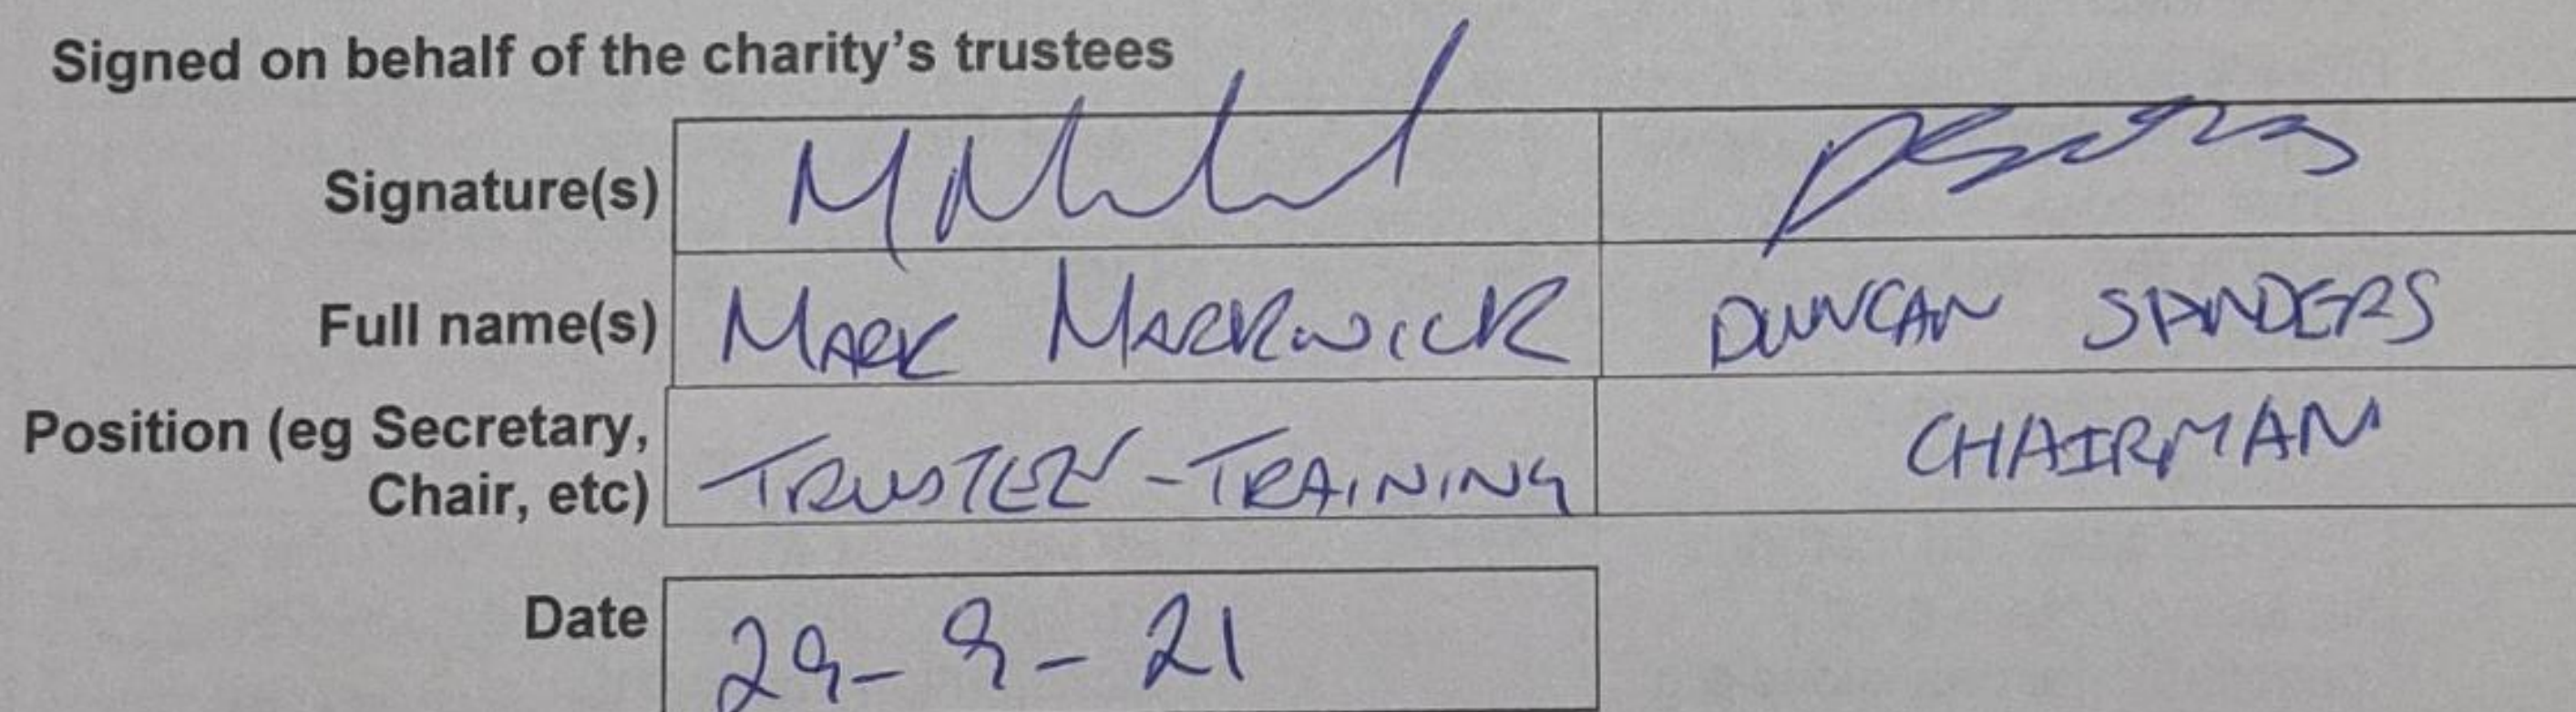 Signed on behalf of the charity's trustees
Signature(s)
Full name(s) MARK MARKWICK DUNCAN SANDERS
Position (eg Secretary,
Chair, etc) TRUSTEE - TRAINING CHAIRMAN
Date 29 - 9 - 21